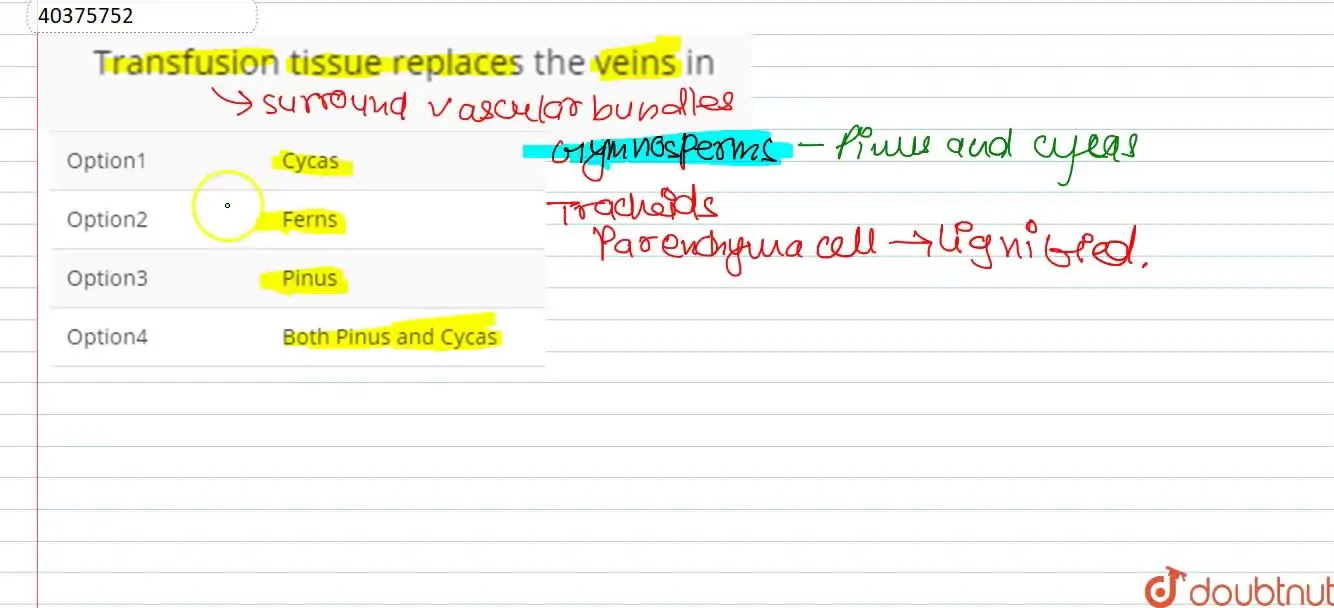 40375752
Transfusion tissue replaces the veins in
→ surround vascular bundles
Option1 Cycas
Gymnosperms – Pinus and cycas
Option2 Ferns
Tracheids
Parenchyma cell → lignified.
Option3 Pinus
Option4 Both Pinus and Cycas
doubtnut